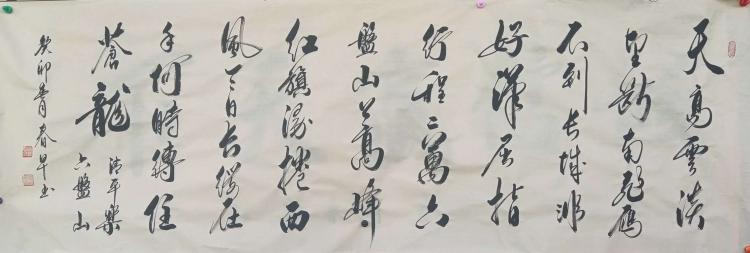 天高雲淡
望斷南飛雁
不到长城非
好漢屈指
行程二萬六
盤山上高峰
红旗漫捲西
風今日长缨在
手何時縛住
蒼龍
清平樂
六盤山
癸卯春早书